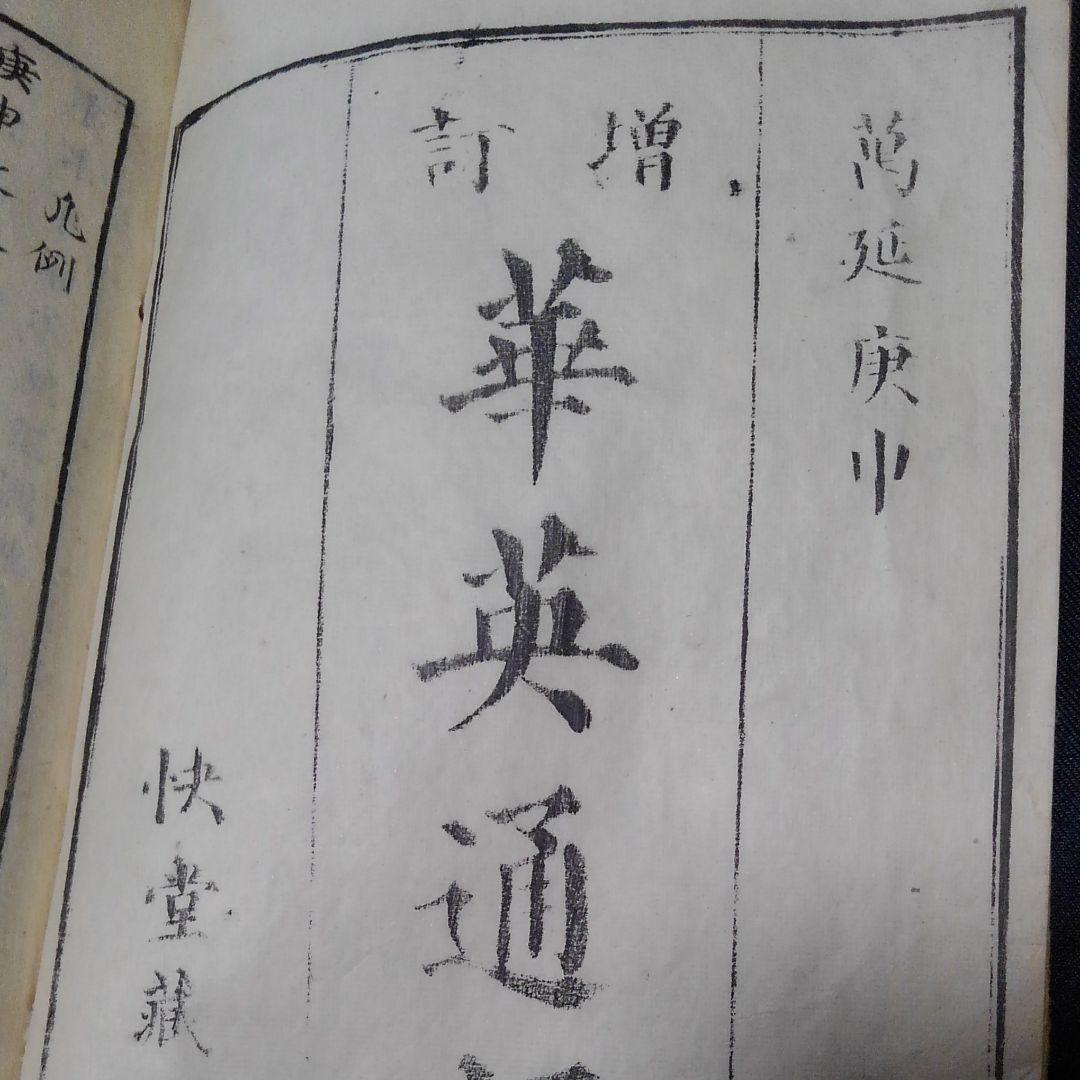 萬延庚申
增訂
華英通
快堂藏
凡例
庚申